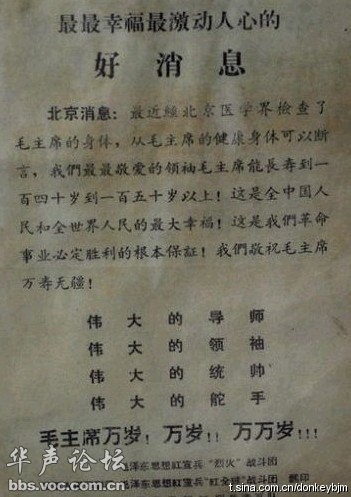 最最幸福最激动人心的
好消息
北京消息：最近經北京医学界檢查了
毛主席的身体，从毛主席的健康身体可以断
言，我們最最敬爱的領袖毛主席能長寿到一
百四十岁到一百五十岁以上！这是全中国人
民和全世界人民的最大幸福！这是我們革命
事业必定胜利的根本保証！我們敬祝毛主席
万寿无疆！
伟大的导师
伟大的領袖
伟大的統帅
伟大的舵手
毛主席万岁！万岁！！万万岁！！！
毛泽东思想紅宣兵“烈火”战斗团
毛泽东思想紅宣兵 战斗团 翻印
华声论坛
bbs.voc.com.cn
t.sina.com.cn/donkeybim